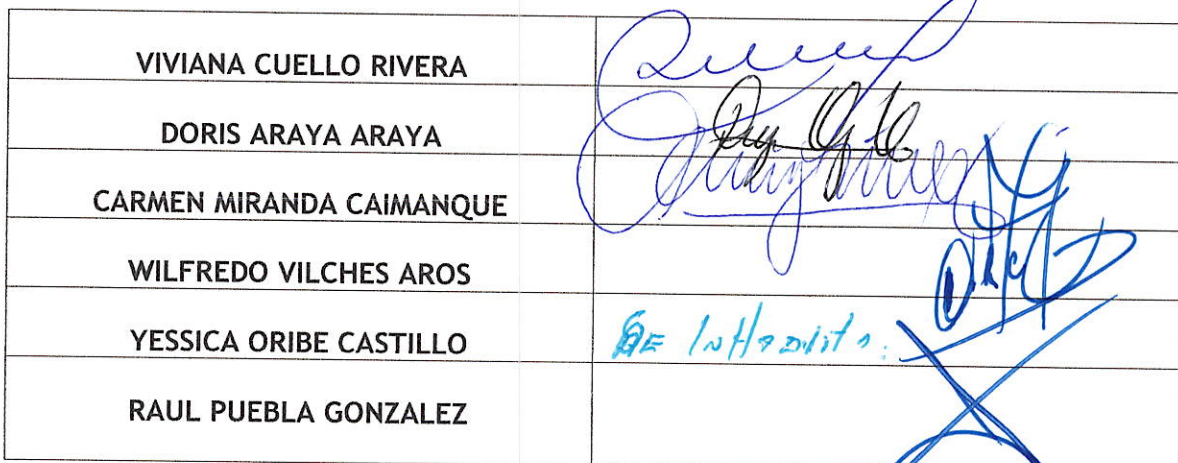 VIVIANA CUELLO RIVERA
DORIS ARAYA ARAYA
CARMEN MIRANDA CAIMANQUE
WILFREDO VILCHES AROS
YESSICA ORIBE CASTILLO
SE INHABILITA.
RAUL PUEBLA GONZALEZ